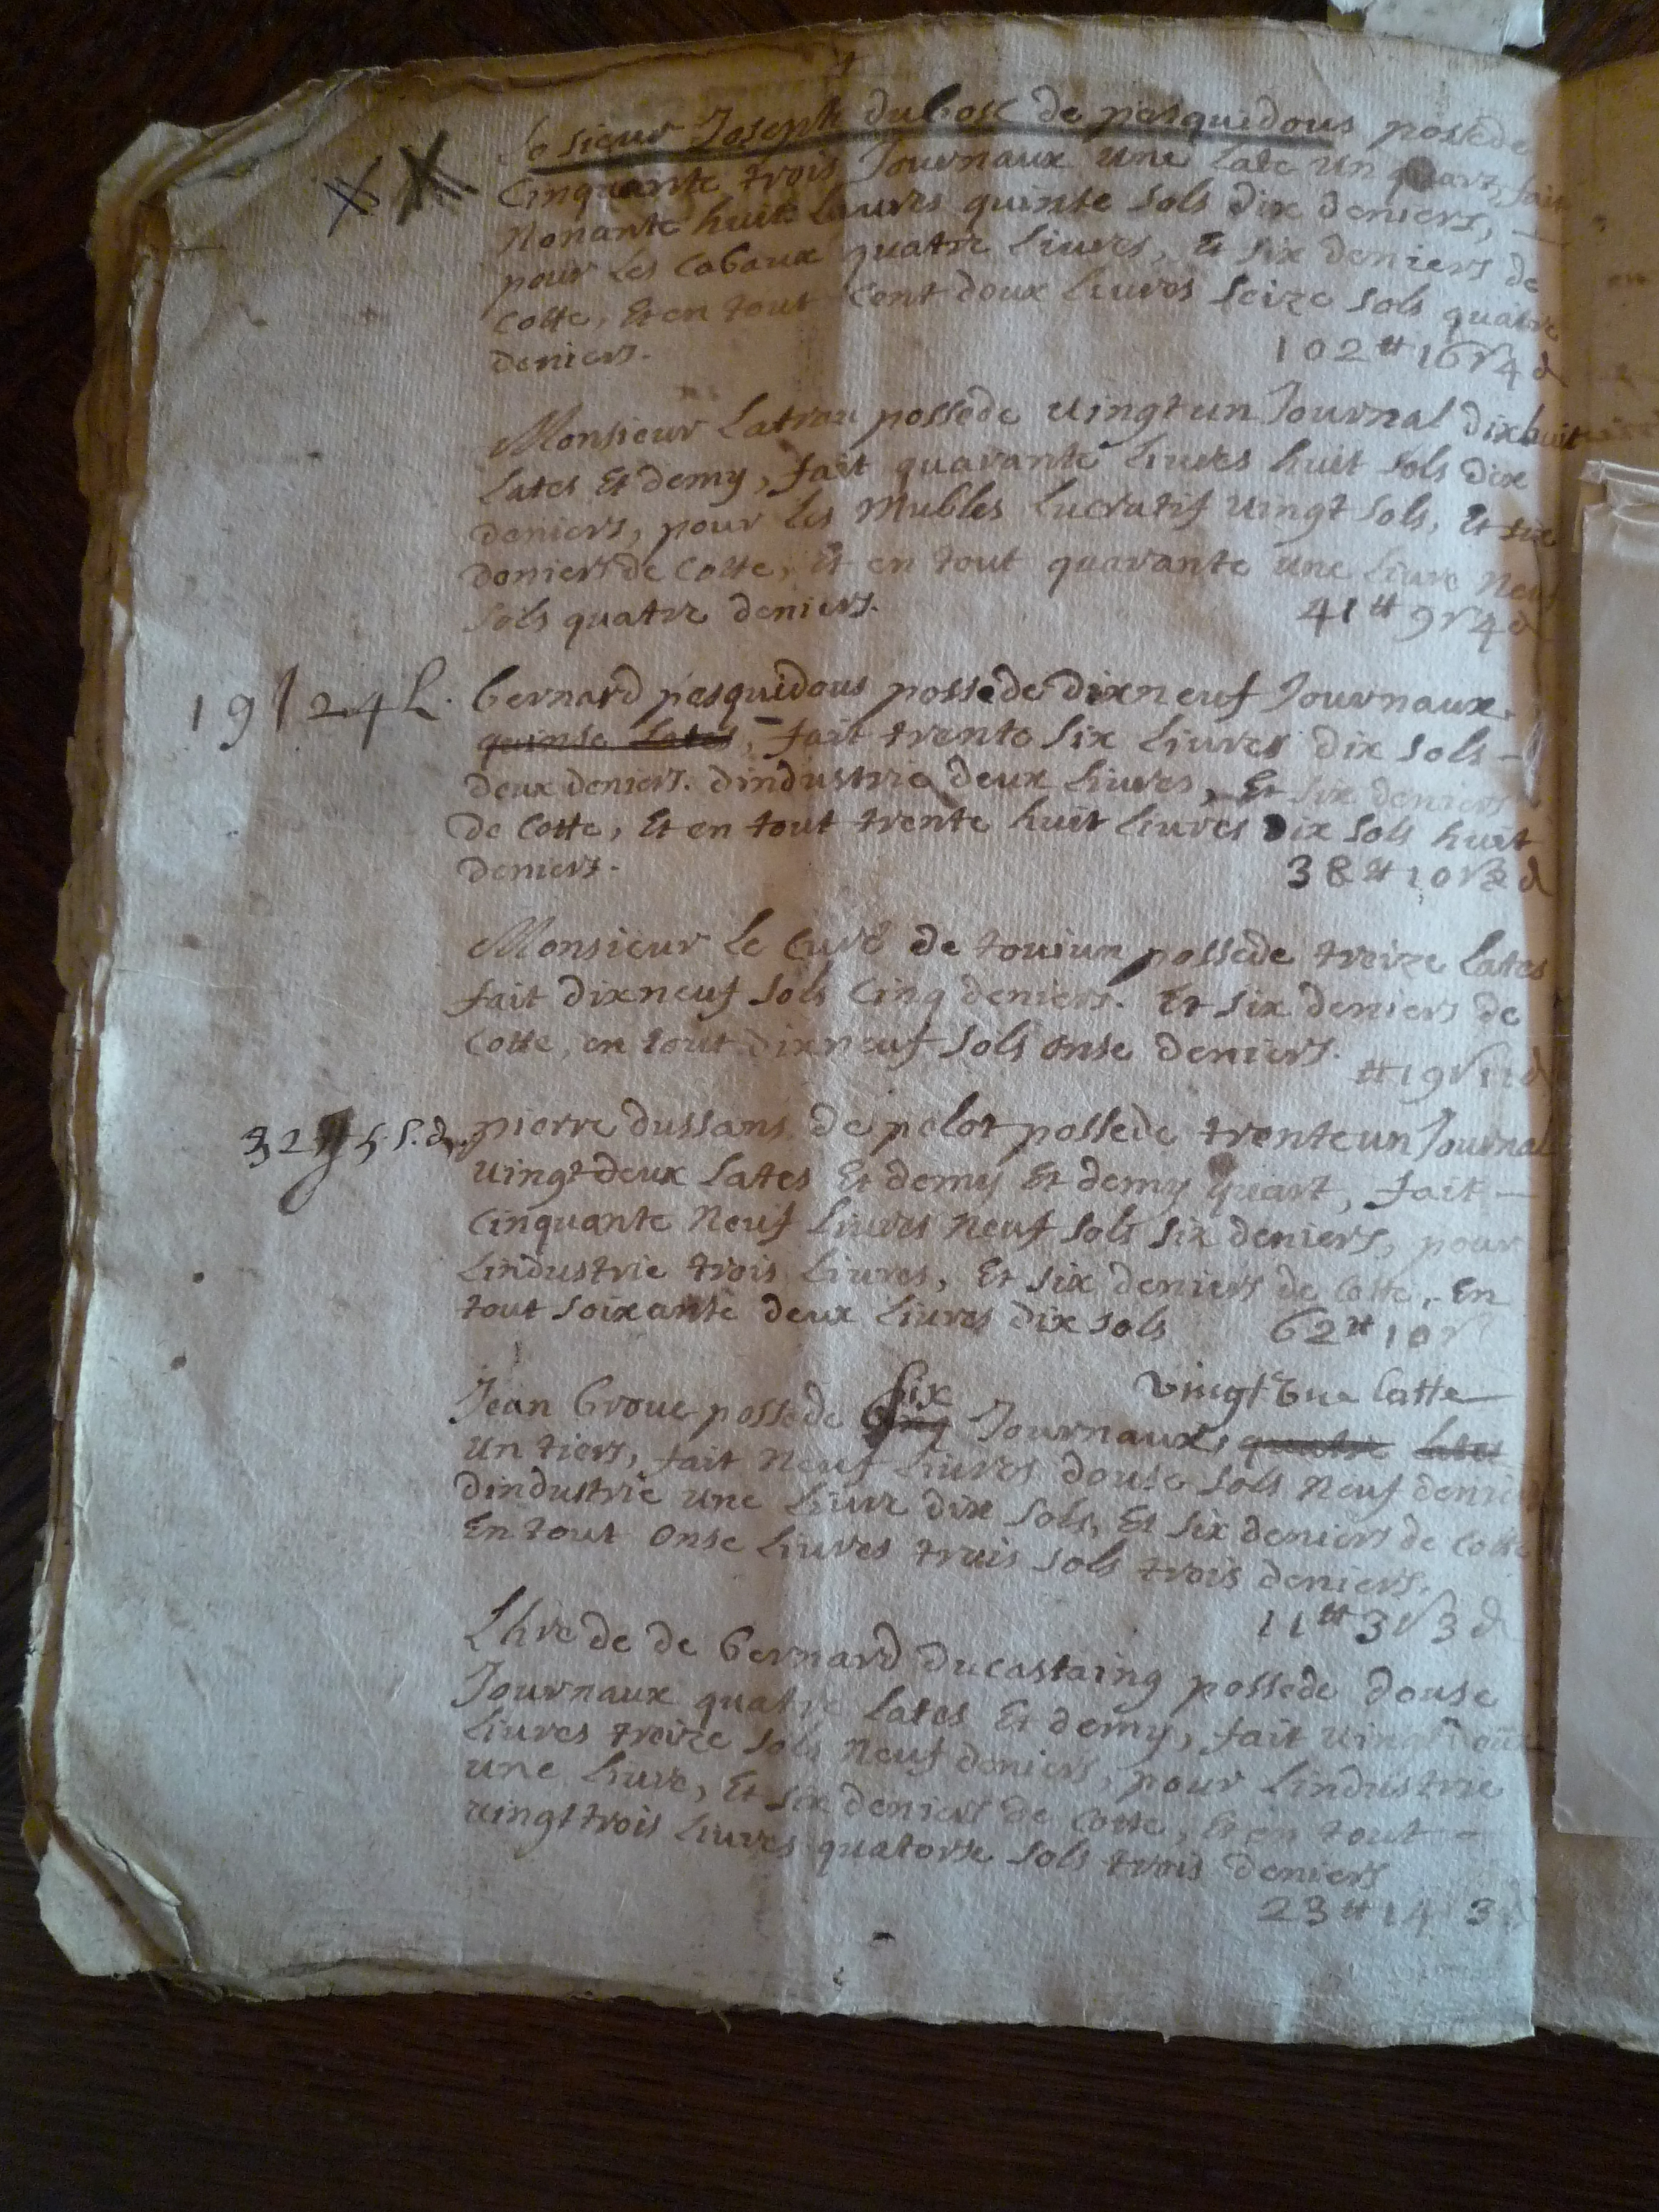 Le sieur Joseph dubosc de pesquidous possede
Cinquante trois Journaux une Late un quart, fait
Nonante huit Liures quinse sols dix deniers,
pour les Cabaux quatre Liures, Et six deniers de
Cotte, Et en tout Cent doux Liures seize sols quatre
deniers.
102 ⁎ 16 s 4 d
Monsieur Latrau possede uingt un Journal dixhuit
Lates Et demy, fait quarante Liures huit sols dix
deniers, pour les Mubles Lucratif uingt sols, Et six
deniers de Cotte, Et en tout quarante une Liure Neuf
sols quatre deniers.
41 ⁎ 9 s 4 d
19 J 24 L.
bernard pesquidous possede dixneuf Journaux,
quinse Lates, fait trente six Liures dix sols
deux deniers. dindustrie deux Liures, Et six deniers
de Cotte, Et en tout trente huit Liures dix sols huit
deniers.
38 ⁎ 10 s 8 d
Monsieur Le Curé de toujun possede treize Lates
fait dixneuf sols Cinq deniers. Et six deniers de
Cotte, en tout dixneuf sols onse deniers.
⁎ 19 s 11 d
32
pierre dussans de pelot possede trente un Journal
uingt deux Lates Et demy Et demy quart, fait
Cinquante Neuf Liures Neuf sols six deniers, pour
Lindustrie trois Liures, Et six deniers de Cotte, En
tout soixante deux Liures dix sols 62 ⁎ 10 s
six vingt Une latte
Jean broue possede Cinq Journaux, quatre Lates
un tiers, fait Neuf Liures douse sols Neuf deniers
dindustrie une Liure dix sols, Et six deniers de Cotte
En tout onse Liures trois sols trois deniers.
11 ⁎ 3 s 3 d
Lhrede de bernard ducastaing possede douse
Journaux quatre Lates Et demy, fait uingt doux
Liures treize sols Neuf deniers, pour Lindustrie
une Liure, Et six deniers de Cotte, Et en tout
uingt trois Liures quatorse sols trois deniers
23 ⁎ 14 3 d